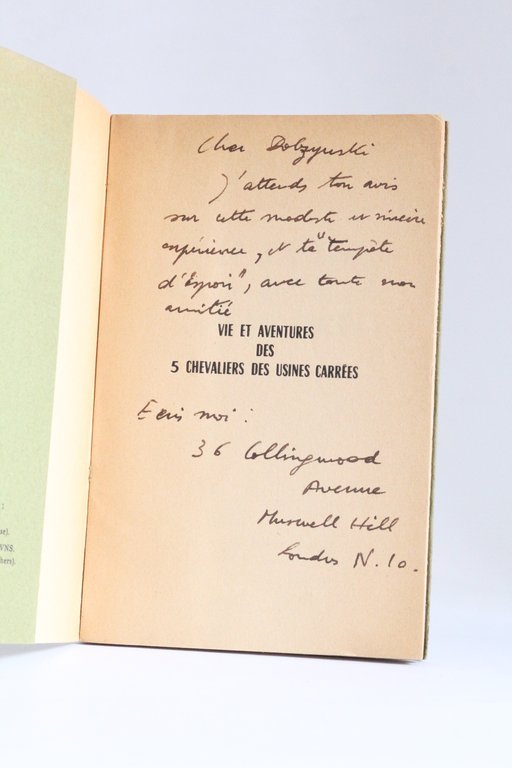 Cher Dobzynski
J'attends ton avis
sur cette modeste et sincère
expérience, et ta "tempête
d'Espoir", avec toute mon
amitié
VIE ET AVENTURES
DES
5 CHEVALIERS DES USINES CARRÉES
Ecris moi :
36 Collingwood
Avenue
Muswell Hill
Londres N.10.
:
se).
WNS.
hers).